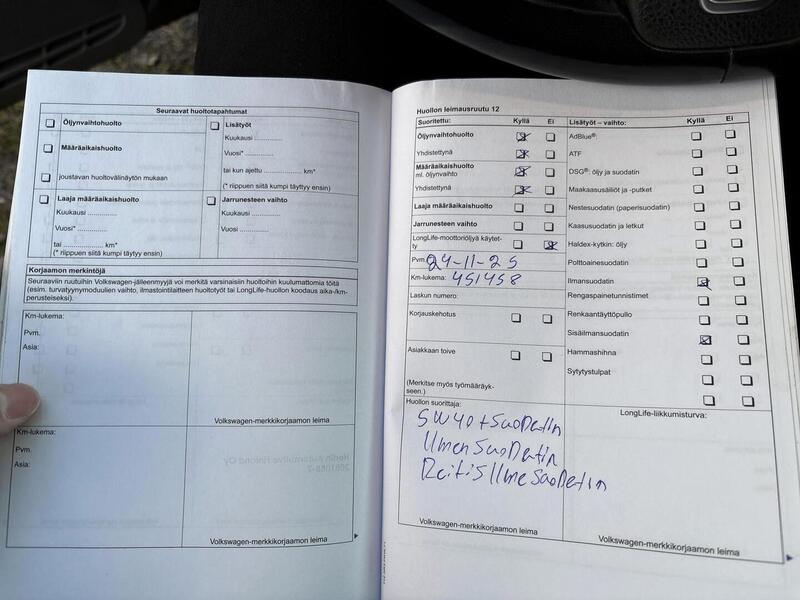 Seuraavat huoltotapahtumat
Öljynvaihtohuolto
Määräaikaishuolto
joustavan huoltovälinäytön mukaan
Lisätyöt
Kuukausi ..............
Vuosi* ..............
tai kun ajettu .................. km*
(* riippuen siitä kumpi täyttyy ensin)
Laaja määräaikaishuolto
Kuukausi ..............
Vuosi* ..............
tai .................... km*
(* riippuen siitä kumpi täyttyy ensin)
Jarrunesteen vaihto
Kuukausi ..............
Vuosi ..............
Korjaamon merkintöjä
Seuraaviin ruutuihin Volkswagen-jälleenmyyjä voi merkitä varsinaisiin huoltoihin kuulumattomia töitä
(esim. turvatyynymoduulien vaihto, ilmastointilaitteen huoltotyöt tai LongLife-huollon koodaus aika-/km-
perusteiseksi).
Km-lukema:
Pvm.
Asia:
Volkswagen-merkkikorjaamon leima
Km-lukema:
Pvm.
Asia:
Volkswagen-merkkikorjaamon leima
Huollon leimausruutu 12
Suoritettu: Kyllä Ei
Öljynvaihtohuolto
Yhdistettynä
Määräaikaishuolto
ml. öljynvaihto
Yhdistettynä
Laaja määräaikaishuolto
Jarrunesteen vaihto
LongLife-moottoriöljyä käytet-
ty
Pvm. 24-11-25
Km-lukema: 451458
Laskun numero:
Korjauskehotus
Asiakkaan toive
(Merkitse myös työmääräyk-
seen.)
Lisätyöt – vaihto: Kyllä Ei
AdBlue®:
ATF
DSG®: öljy ja suodatin
Maakaasusäiliöt ja -putket
Nestesuodatin (paperisuodatin)
Kaasusuodatin ja letkut
Haldex-kytkin: öljy
Polttoainesuodatin
Ilmansuodatin
Rengaspainetunnistimet
Renkaantäyttöpullo
Sisäilmansuodatin
Hammashihna
Sytytystulpat
Huollon suorittaja:
5W40+SuoDatin
IlmenSuoDatin
ReitisIlmeSuoDetin
Volkswagen-merkkikorjaamon leima
LongLife-liikkumisturva:
Volkswagen-merkkikorjaamon leima